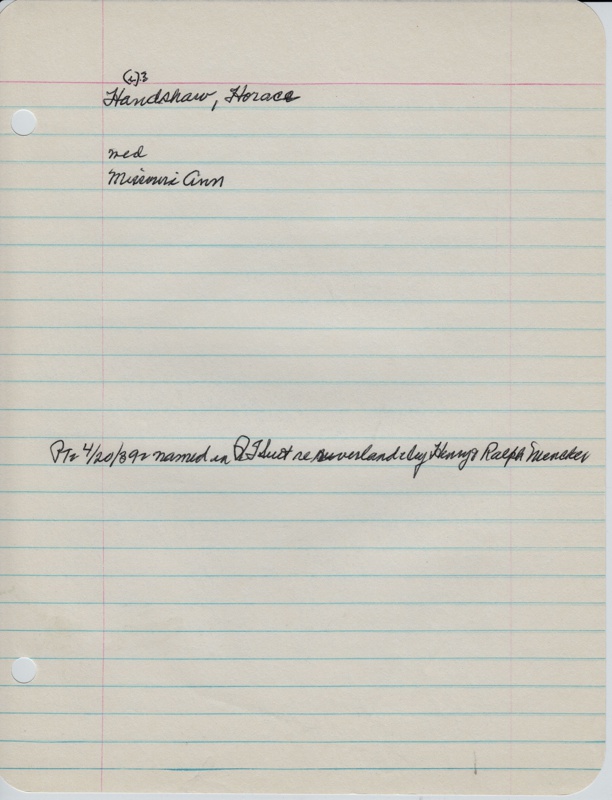 (2).3
Handshaw, Horace
med
Missouri Ann
4/20/39 named in QT suit re riverland by Henry & Ralph Meneker